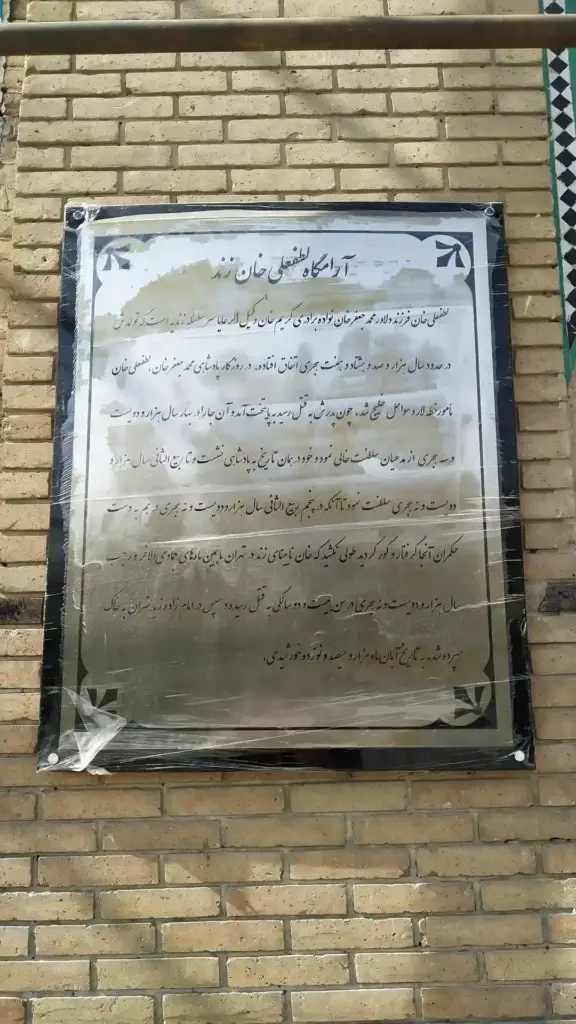 آرامگاه لطفعلی خان زند
لطفعلی خان فرزند دلاور محمد جعفرخان نواده برادری کریم خان وکیل الرعایا سر سلسله زندیه است که تولدش
در حدود سال هزار و صد و هشتاد و هفت هجری اتفاق افتاده، در روزگار پادشاهی محمد جعفر خان، لطفعلی خان
مأمور خطه لار و سواحل خلیج شد، چون پدرش به قتل رسید به پایتخت آمد و آن جا را در بهار سال هزار و دویست
و سه هجری از مدعیان سلطنت خالی نمود و خود در همان تاریخ به پادشاهی نشست و تا ربیع الثانی سال هزار و
دویست و نه هجری سلطنت نمود تا آنکه در پنجم ربیع الثانی سال هزار و دویست و نه هجری در بم به دست
حکمران آنجا گرفتار و کور گردید طولی نکشید که خان نابینای زند در تهران مابین ماه های جمادی الاخر و رجب
سال هزار و دویست و نه هجری در سن بیست و دو سالگی به قتل رسیده و سپس در امام زاده زید تهران به خاک
سپرده شد. به تاریخ آبان ماه هزار و سیصد و نود و دو خورشیدی.